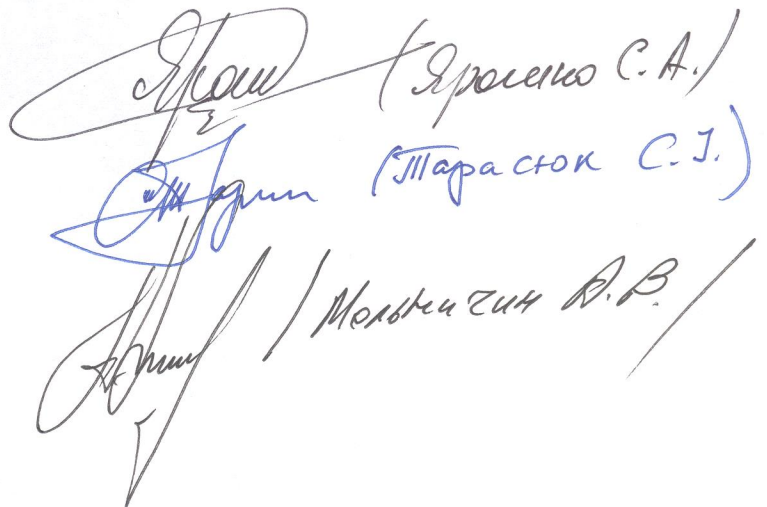 (Ярошко С. А.)
(Тарасюк С. І.)
/ Мельничин А. В. /